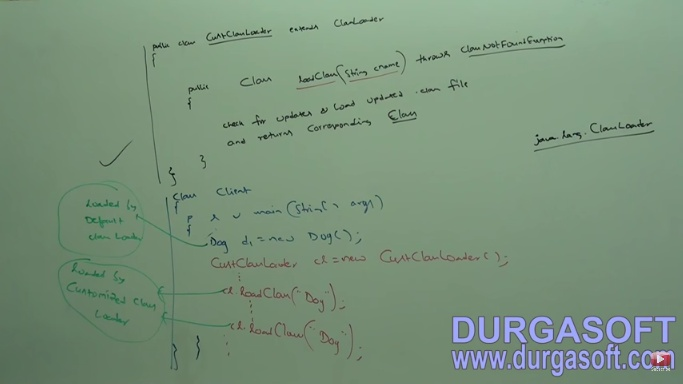 public class CustClassLoader extends ClassLoader
{
public Class loadClass(String cname) throws ClassNotFoundException
{
check for updates & load updated .class file
and returns corresponding Class
}
}
java.lang.ClassLoader
class Client
{
p s v main(String[] args)
{
Dog d1=new Dog();
CustClassLoader cl=new CustClassLoader();
cl.loadClass("Dog");
cl.loadClass("Dog");
}
}
Loaded by
Default
class Loader
Loaded by
Customized class
Loader
DURGASOFT
www.durgasoft.com
SUBSCRIBE